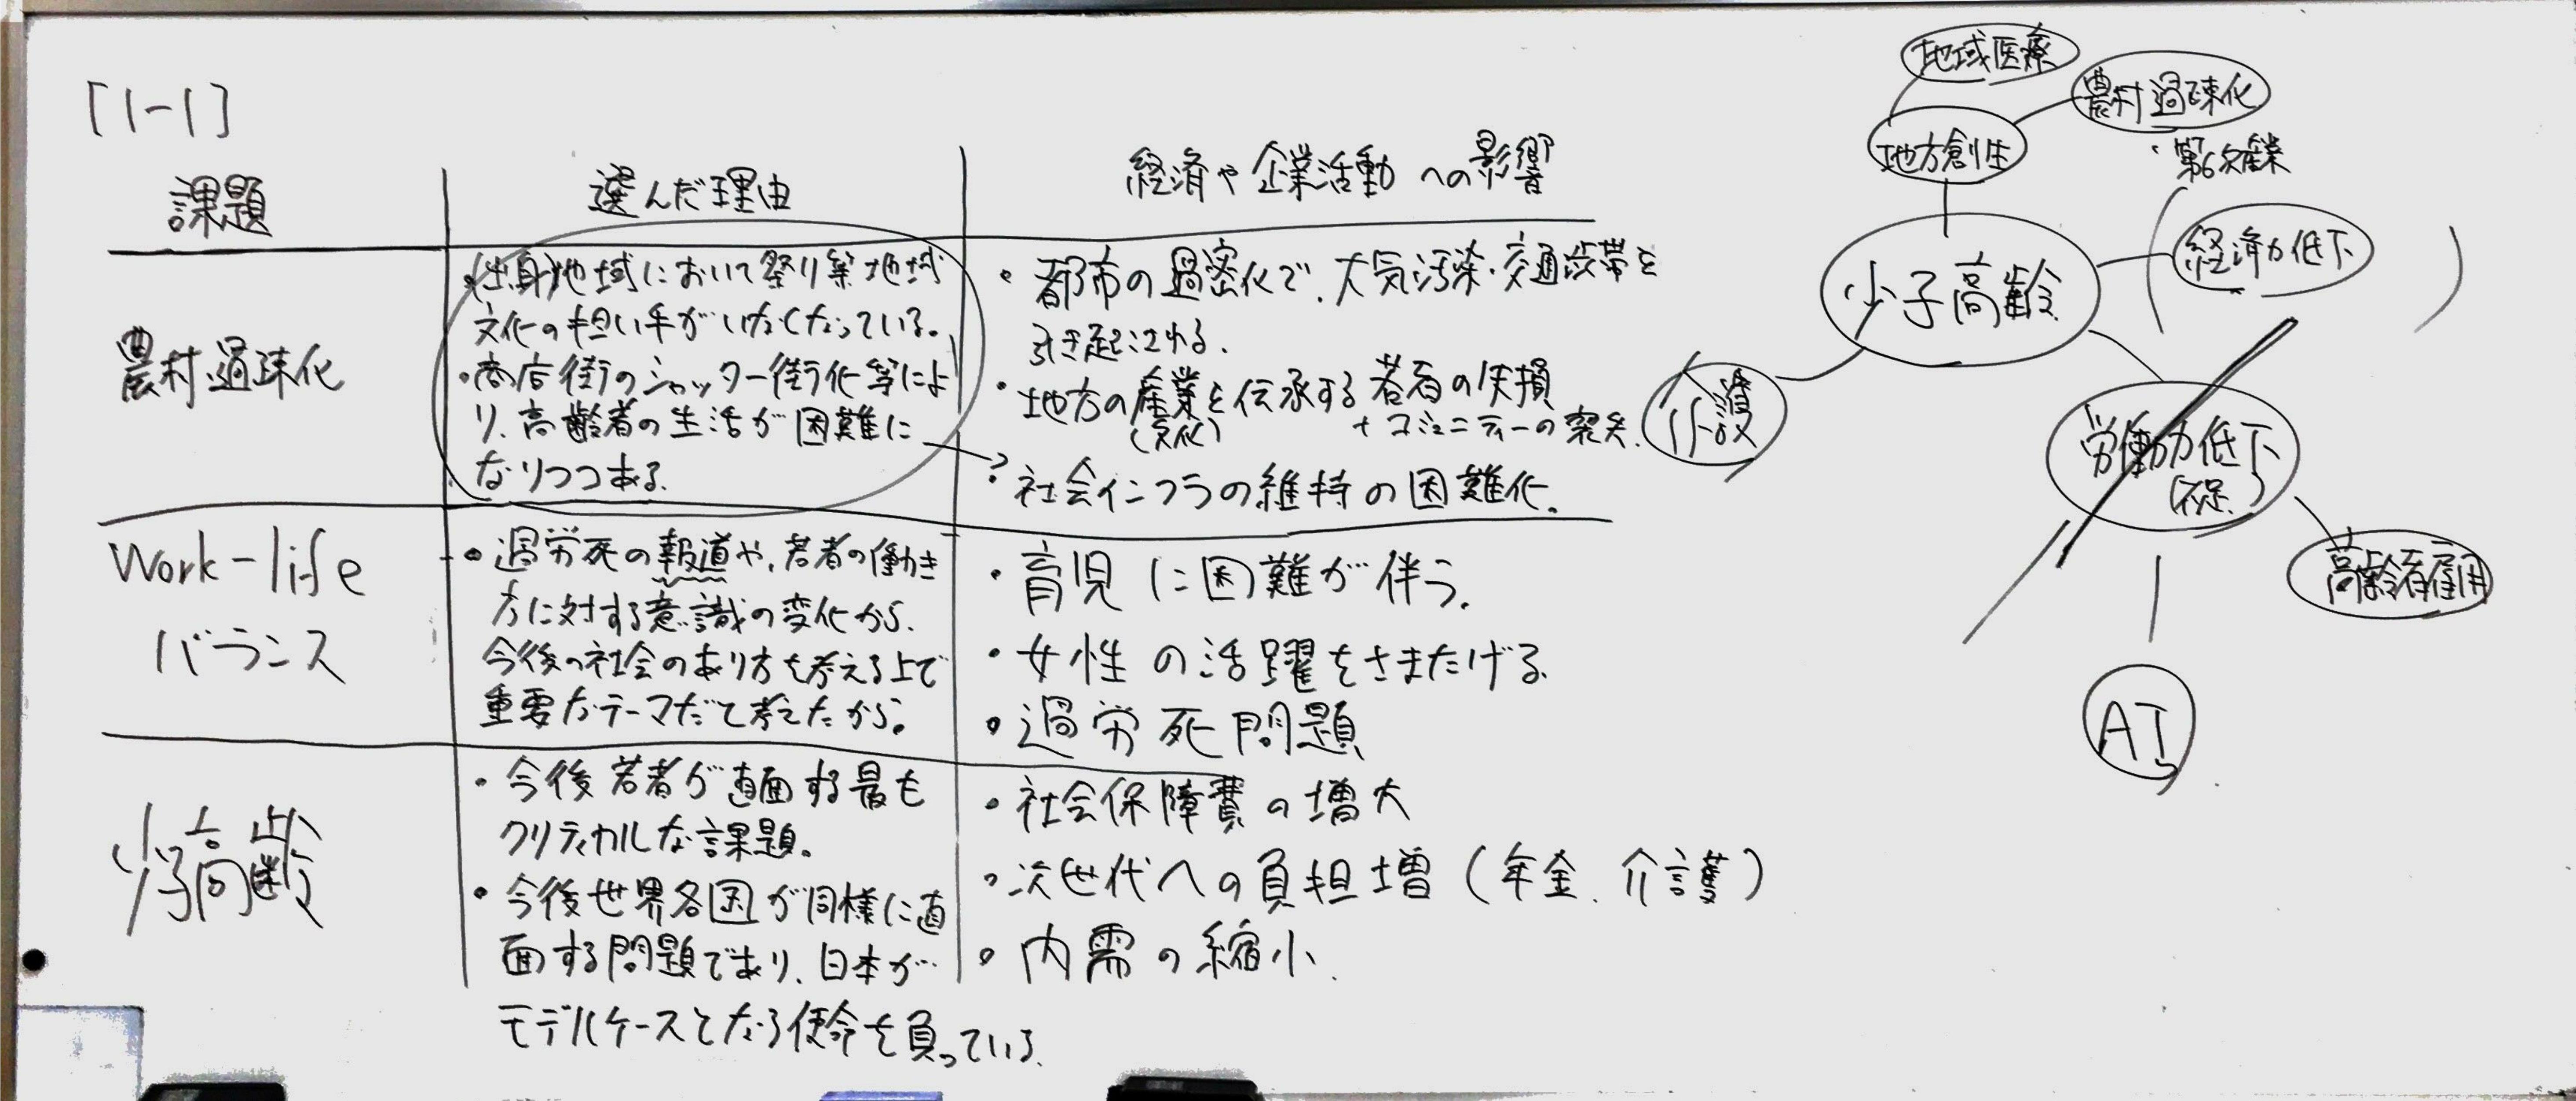 [1-1]
課題
選んだ理由
経済や企業活動への影響
農村過疎化
・出身地域において祭り等地域
文化の担い手がいなくなっている。
・商店街のシャッター街化等によ
り、高齢者の生活が困難に
なりつつある。
・都市の過密化で、大気汚染・交通渋帯を
引き起こされる。
・地方の産業を伝承する若者の失損
(文化)
+コミュニティーの喪失.
?
社会インフラの維持の困難化。
Work-life
バランス
・過労死の報道や、若者の働き
方に対する意識の変化から、
今後の社会のあり方を考える上で
重要なテーマだと考えたから。
・育児に困難が伴う。
・女性の活躍をさまたげる。
・過労死問題
少子高齢
・今後若者が直面する最も
クリティカルな課題。
・今後世界各国が同様に直
面する問題であり、日本が
モデルケースとなる使命を負っている。
・社会保障費の増大
・次世代への負担増(年金、介護)
・内需の縮小.
地域医療
農村過疎化
地方創生
・第6次産業
少子高齢
経済力低下
介護
労働力低下
(不足)
高齢者雇用
AI